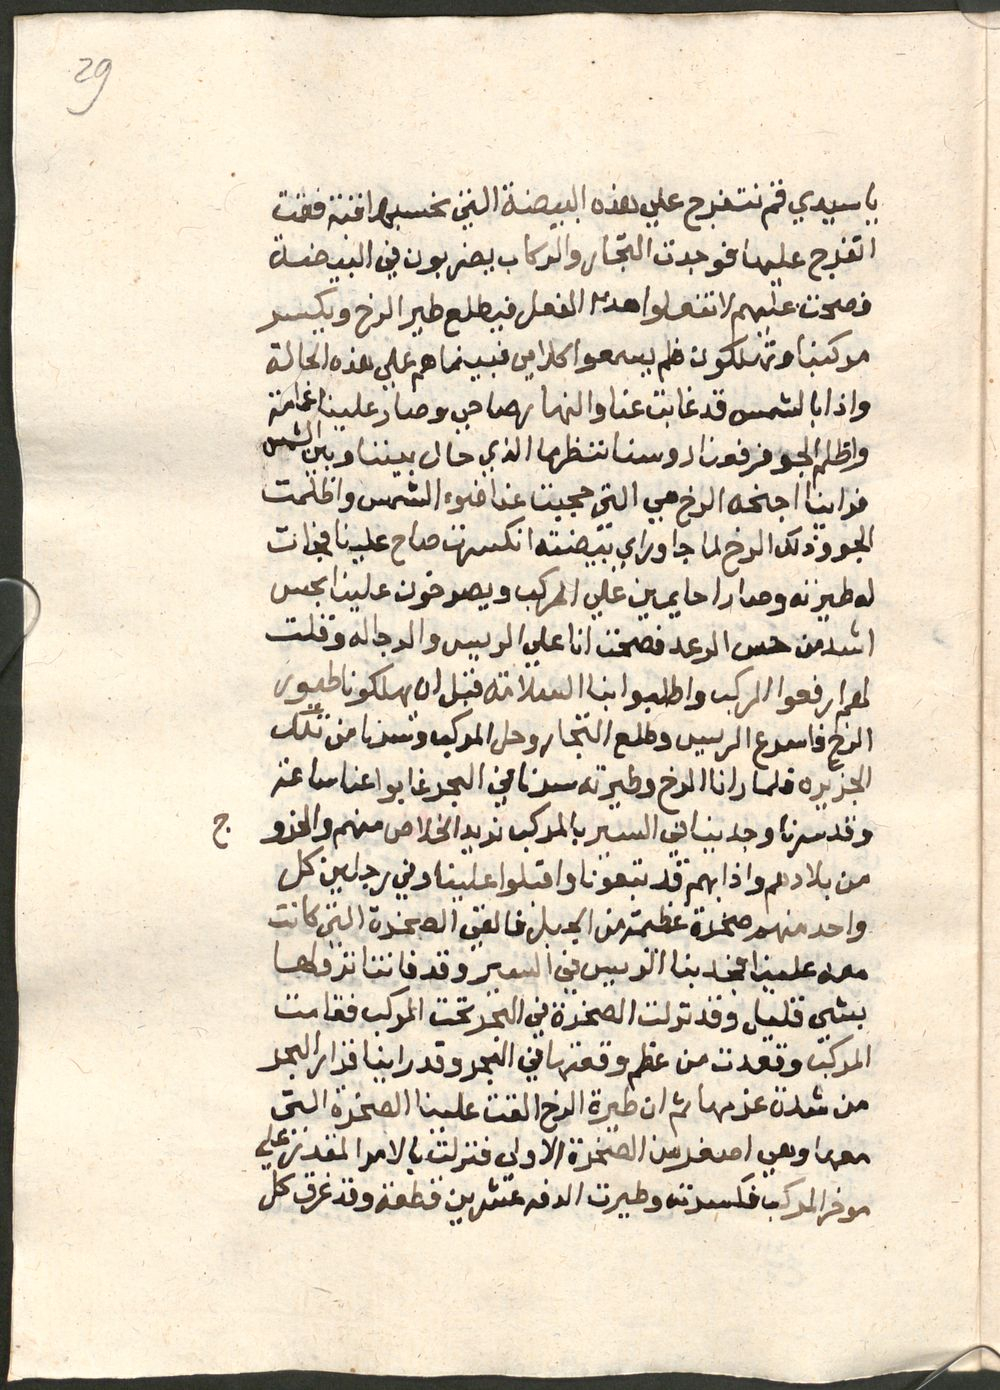 29
يا سيدي قم نتفرج علي هذه البيضة التي نحسبها قنة فقمت
اتفرج عليها فوجدت التجار والركاب يضربون في البيضة
فصحت عليهم لا تفعلوا هذا الفعل فيطلع طير الرخ ويكسر
مركبنا وتهلكون فلم يسمعوا كلامي فبينما هم علي هذه الحالة
واذا بالشمس قد غابت عنا والنهار صاحي وصار علينا غمامة
واظلم الجو فرفعنا روسنا ننظر ما الذي حال بيننا وبين الشمس
فراينا اجنحه الرخ هي التي حجبت عنا ضوء الشمس واظلمت
الجو وذلك الرخ لما جا وراي بيضته انكسرت صاح علينا فجات
له طيرته وصارا حايمين علي المركب ويصرخون علينا بحس
اشد من حس الرعد فصحت انا علي الرييس والرجاله وقلت
لهم ارفعوا المركب واطلبوا بنا السلامة قبل ان يهلكونا طيور
الرخ فاسرع الرييس وطلع التجار وحل المركب وسرنا من تلك
الجزيره فلما رانا الرخ وطيرته سرنا في البحر غابوا عنا ساعة
وقد سرنا وجدينا في السير بالمركب نريد الخلاص منهم والخرو
ج
من بلادهم واذا بهم قد تبعونا واقبلوا علينا وفي رجلين كل
واحد منهم صخرة عظيمة من الجبل فالقي الصخرة التي كانت
معه علينا فجذبنا الرييس في السير وقد فاتنا نزولها
بشي قليل وقد نزلت الصخرة في البحر تحت المركب فقامت
المركب وقعدت من عظم وقعتها في البحر وقد راينا قرار البحر
من شدة عزمها ثم ان طيرة الرخ القت علينا الصخرة التي
معها وهي اصغر من الصخرة الاولي فنزلت بالامر المقدر علي
موخر المركب فكسرته وطيرت الدفه عشرين قطعة وقد غرق كل